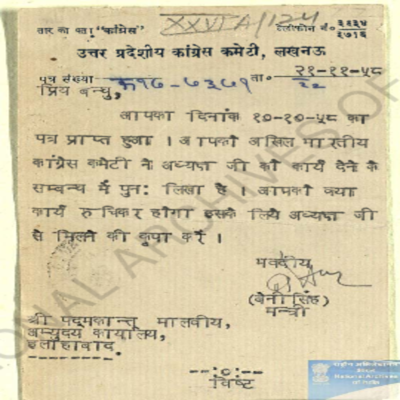 तार का पता "कांग्रेस"
XXVIA/124
टेलीफोन नं०
उत्तर प्रदेशीय कांग्रेस कमेटी, लखनऊ
पत्र संख्या ता० २१-११-५८
प्रिय बन्धु,
आपका दिनांक १०-१०-५८ का
पत्र प्राप्त हुआ । आपको अखिल भारतीय
कांग्रेस कमेटी ने अध्यक्ष जी को कार्य देने के
सम्बन्ध में पुन: लिखा है । आपको क्या
कार्य रुचिकर होगा इसके लिये अध्यक्ष जी
से मिलने की कृपा करें ।
भवदीय
(बेनी सिंह)
मन्त्री
श्री पद्मकान्त मालवीय,
अभ्युदय कार्यालय,
इलाहाबाद.
--:०:--
विष्ट